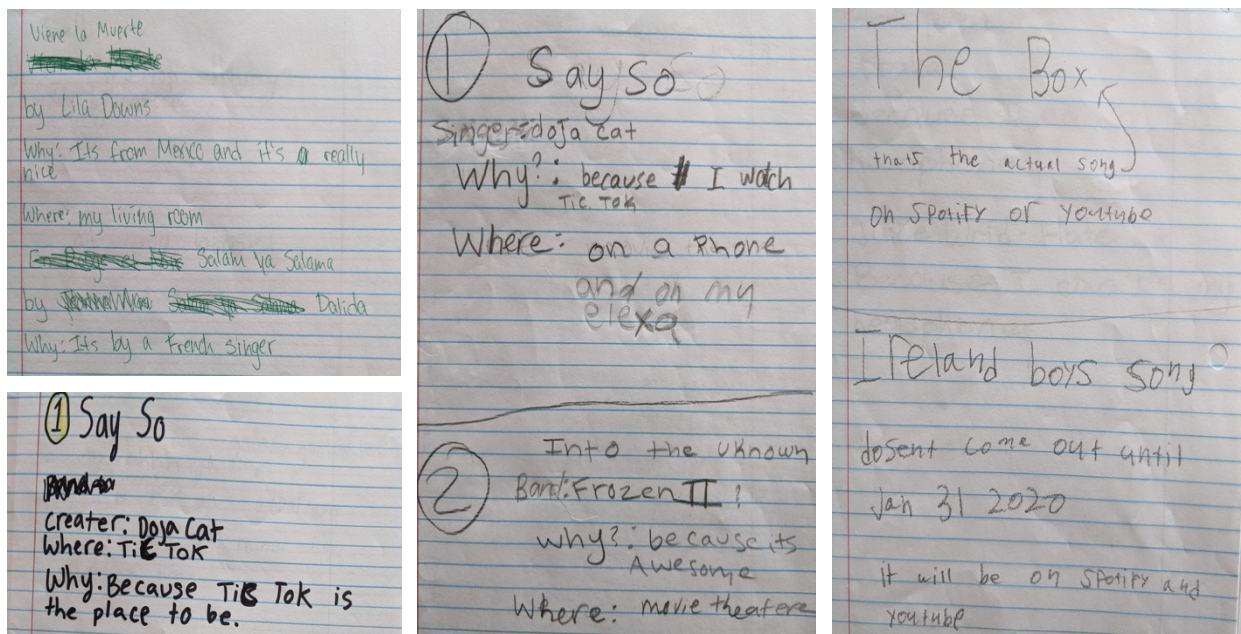 Viene la Muerte
by Lila Downs
Why: Its from Mexico and it's a really
nice
Where: my living room
Salama Ya Salama
by Dalida
Why: Its by a French singer
1 Say So
Creater: Doja Cat
Where: Tic Tok
Why: Because Tic Tok is
the place to be.
1 Say So
Singer: doja cat
Why?: because I watch
Tic Tok
Where: on a Phone
and on my
elexa
2 Into the uknown
Band: Frozen II ?
why?: because its
Awesome
Where: movie theatere
The Box
thats the actual song
on Spotify or Youtube
Ireland boys song
dosent come out until
Jan 31 2020
it will be on Spotify and
youtube